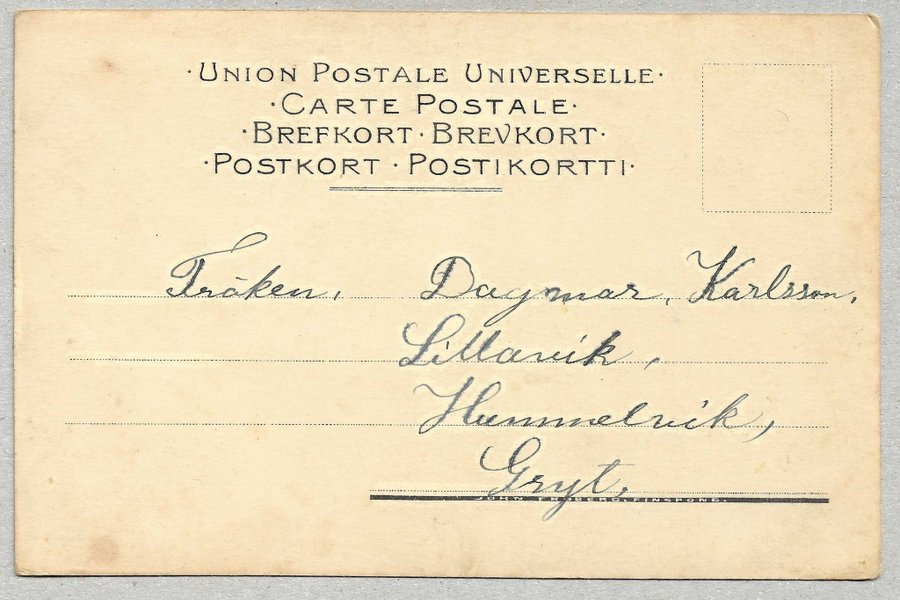 ·UNION POSTALE UNIVERSELLE·
·CARTE POSTALE·
·BREFKORT·BREVKORT·
·POSTKORT·POSTIKORTTI·
Fröken, Dagmar, Karlsson,
Lillavik,
Hummelvik,
Gryt,
JOHN FRÖBERG, FINSPONG.